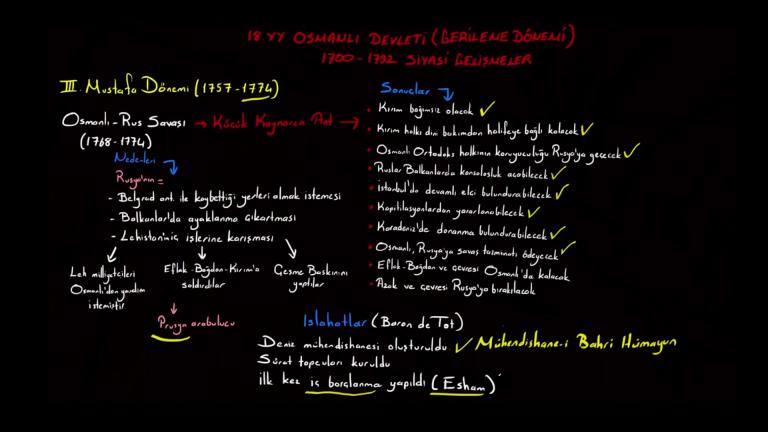 18.YY OSMANLI DEVLETİ (GERİLEME DÖNEMİ)
1700 - 1792 SİYASİ GELİŞMELER
III. Mustafa Dönemi (1757-1774)
Osmanlı-Rus Savaşı → Küçük Kaynarca Ant →
(1768-1774)
Nedenleri
Rusya'nın =
- Belgrad ant. ile kaybettiği yerleri almak istemesi
- Balkanlar'da ayaklanma çıkartması
- Lehistan'ın iç işlerine karışması
Leh milliyetçileri
Osmanlı'dan yardım
istemiştir
Eflak-Boğdan-Kırım'a
saldırdılar
Çeşme Baskınını
yaptılar
Prusya arabulucu
Sonuçlar
Kırım bağımsız olacak ✓
Kırım halkı dini bakımdan halifeye bağlı kalacak ✓
Osmanlı Ortodoks halkının koruyuculuğu Rusya'ya geçecek ✓
Ruslar Balkanlarda konsolosluk açabilecek ✓
İstanbul'da devamlı elçi bulundurabilecek ✓
Kapitilasyonlardan yararlanabilecek ✓
Karadeniz'de donanma bulundurabilecek ✓
Osmanlı, Rusya'ya savaş tazminatı ödeyecek ✓
Eflak-Boğdan ve çevresi Osmanlı'da kalacak
Azak ve çevresi Rusya'ya bırakılacak
Islahatlar (Baron de Tot)
Deniz mühendishanesi oluşturuldu ✓ Mühendishane-i Bahri Hümayun
Sürat topçuları kuruldu
İlk kez iç borçlanma yapıldı (Esham)